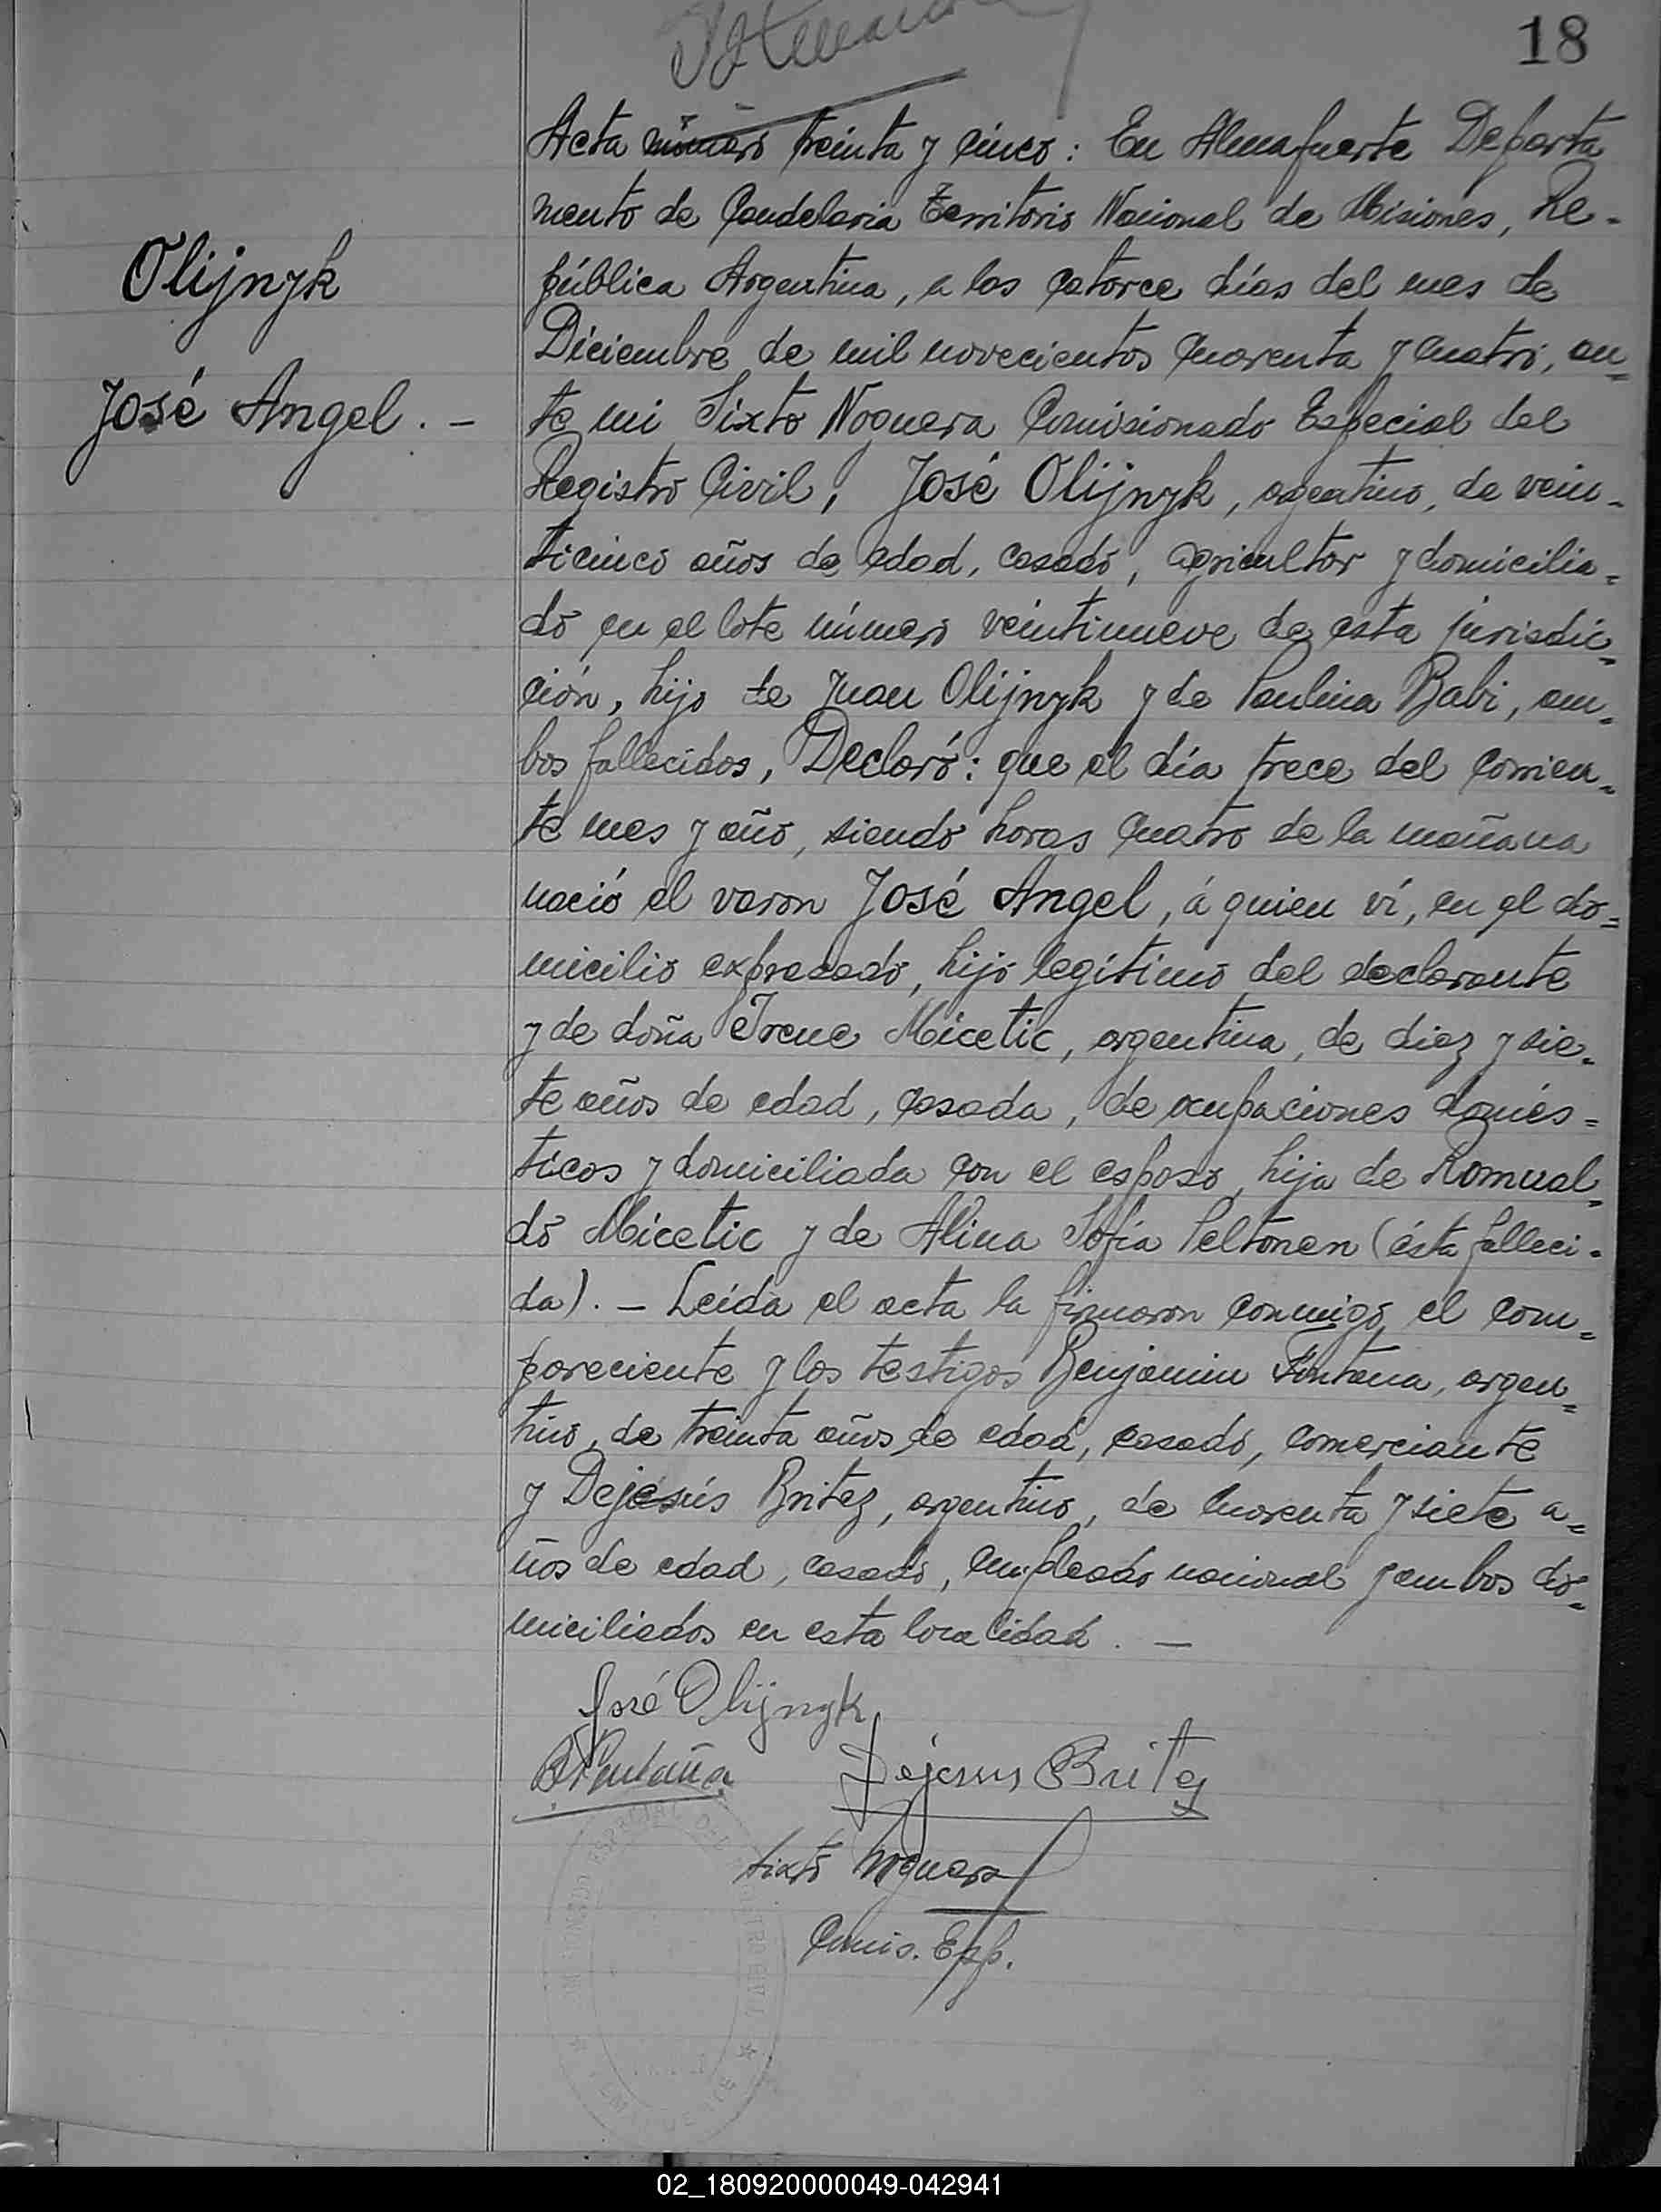 18
Acta número treinta y cinco: En Almafuerte Departa
mento de Candelaria Territorio Nacional de Misiones, Re-
pública Argentina, a los catorce días del mes de
Diciembre de mil novecientos cuarenta y cuatro, an=
te mi Sixto Noguera Comisionado Especial del
Registro Civil, José Olijnyk, argentino, de vein-
ticinco años de edad, casado, agricultor y domicilia=
do en el lote número veintinueve de esta jurisdic=
ción, hijo de Juan Olijnyk y de Paulina Babi, am=
bos fallecidos, Declaró: que el día trece del corrien=
te mes y año, siendo horas cuatro de la mañana
nació el varon José Angel, á quien ví, en el do=
micilio expresado, hijo legítimo del declarante
y de doña Irene Micetic, argentina, de diez y sie=
te años de edad, casada, de ocupaciones domés=
ticas y domiciliada con el esposo, hija de Romual=
do Micetic y de Alina Sofía Peltonen (ésta falleci=
da). — Leída el acta la firmaron conmigo, el com=
pareciente y los testigos Benjamin Fontana, argen=
tino, de treinta años de edad, casado, comerciante
y Dejesús Britez, argentino, de cuarenta y siete a=
ños de edad, casado, empleado nacional y ambos do=
miciliados en esta localidad. —
Olijnyk
José Angel. —
José Olijnyk
Dejesus Britez
Sixto Noguera
Comis. Esp.
02_180920000049-042941